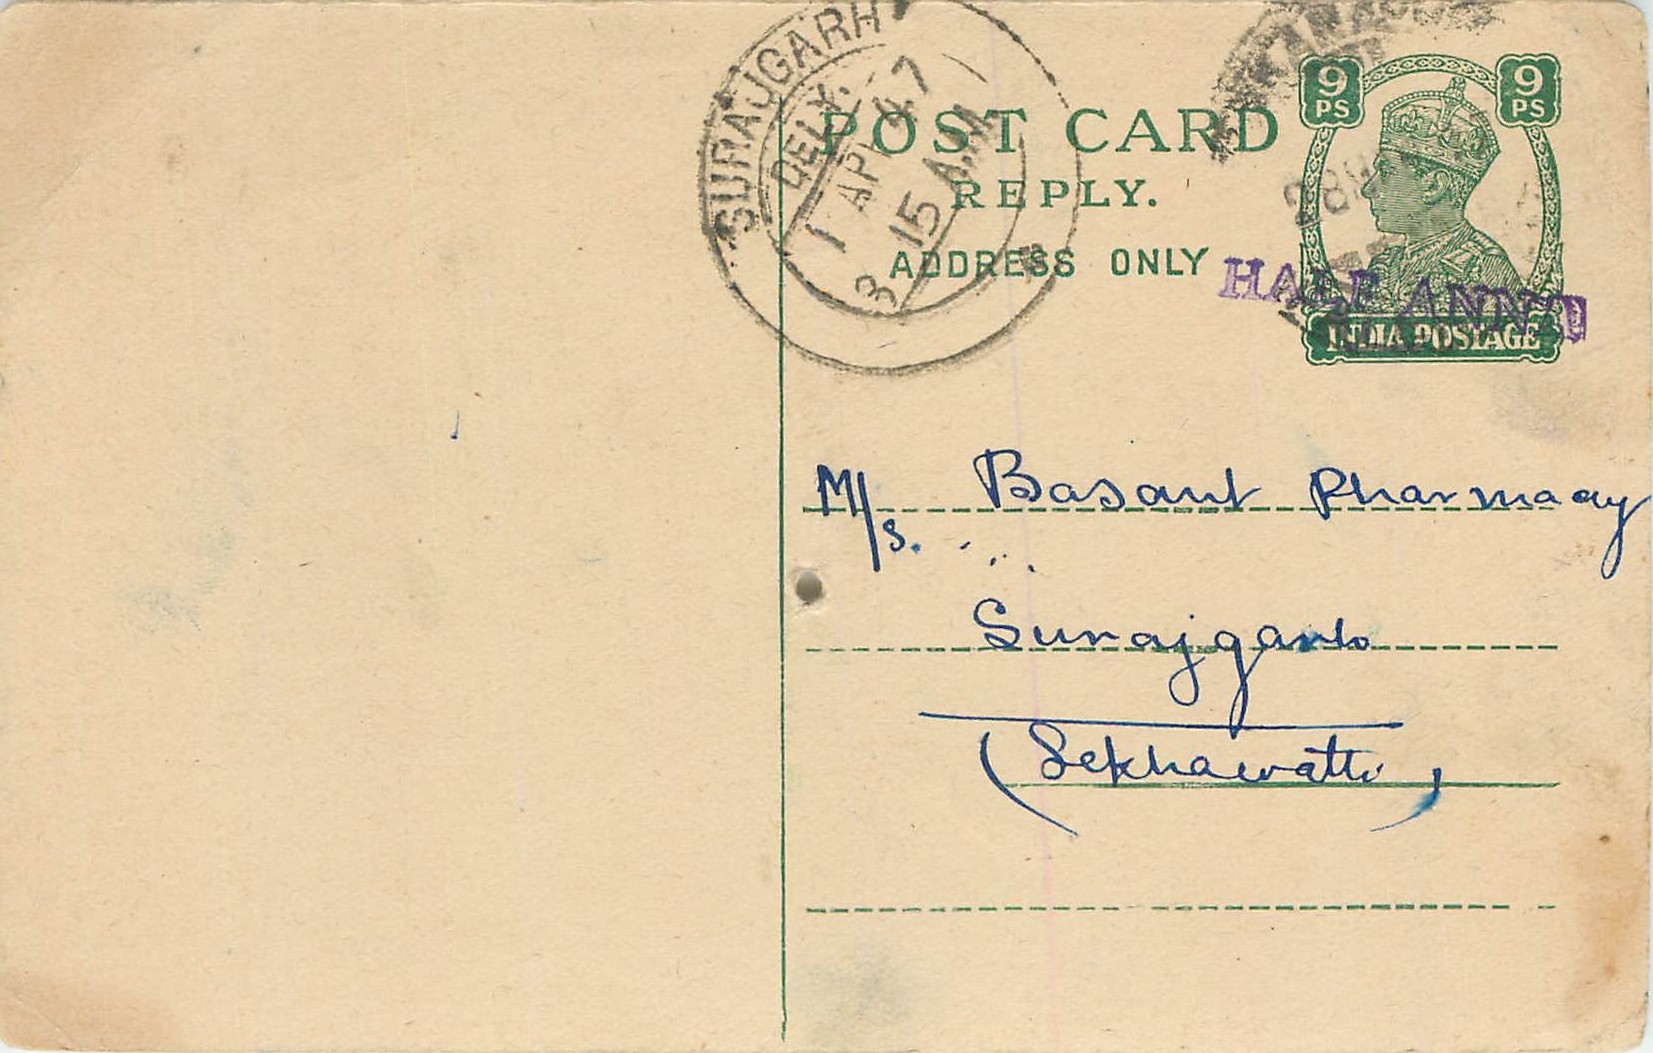 SURAJGARH
DELY.
1 APR 47
8 15 A.M
POST CARD
REPLY.
ADDRESS ONLY
9 PS
9 PS
28 MAR
HALF ANNA
INDIA POSTAGE
M/s. Basant Pharmacy
Surajgarh
(Sekhawatti)